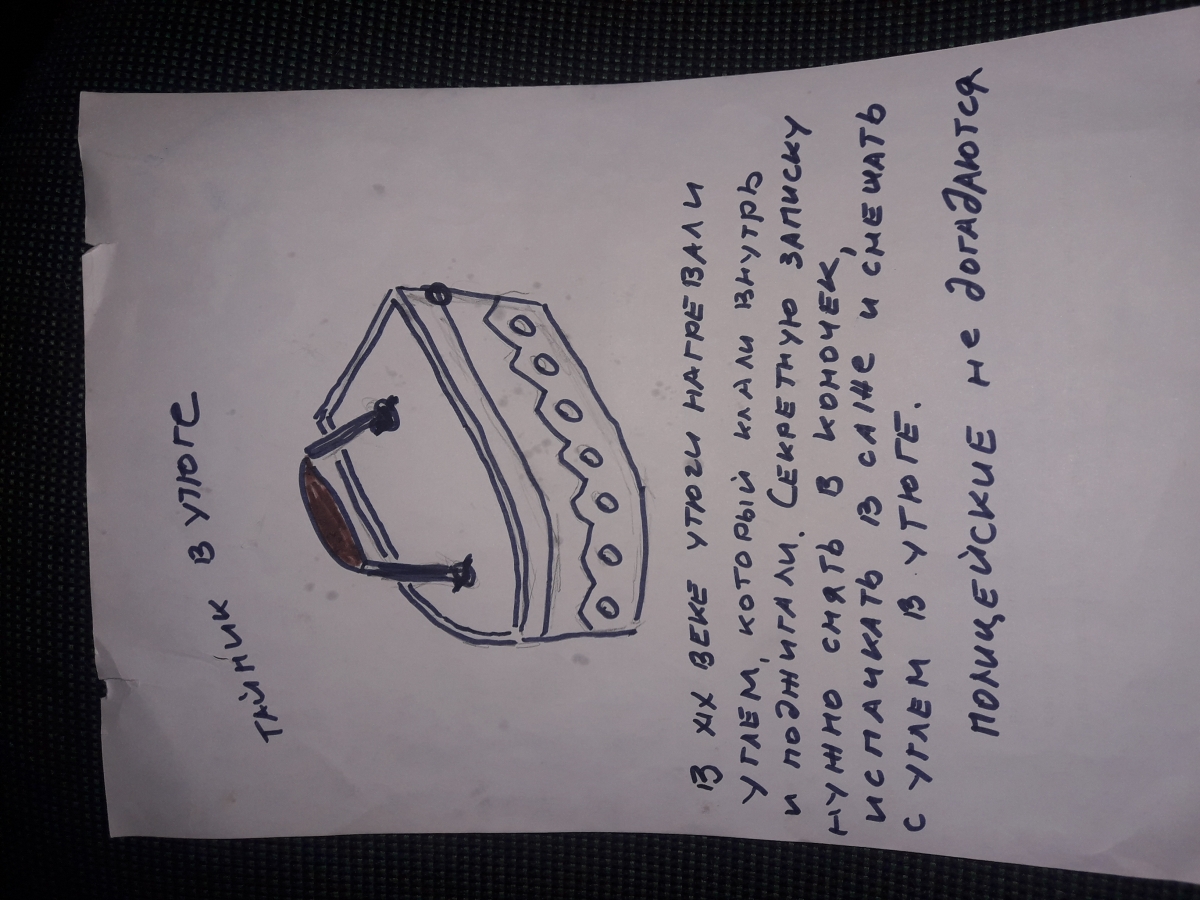 ТАЙНИК В УТЮГЕ
В XIX ВЕКЕ УТЮГИ НАГРЕВАЛИ
УГЛЕМ, КОТОРЫЙ КЛАЛИ ВНУТРЬ
И ПОДЖИГАЛИ. СЕКРЕТНУЮ ЗАПИСКУ
НУЖНО СМЯТЬ В КОМОЧЕК,
ИСПАЧКАТЬ В САЖЕ И СМЕШАТЬ
С УГЛЕМ В УТЮГЕ.
ПОЛИЦЕЙСКИЕ НЕ ДОГАДАЮТСЯ